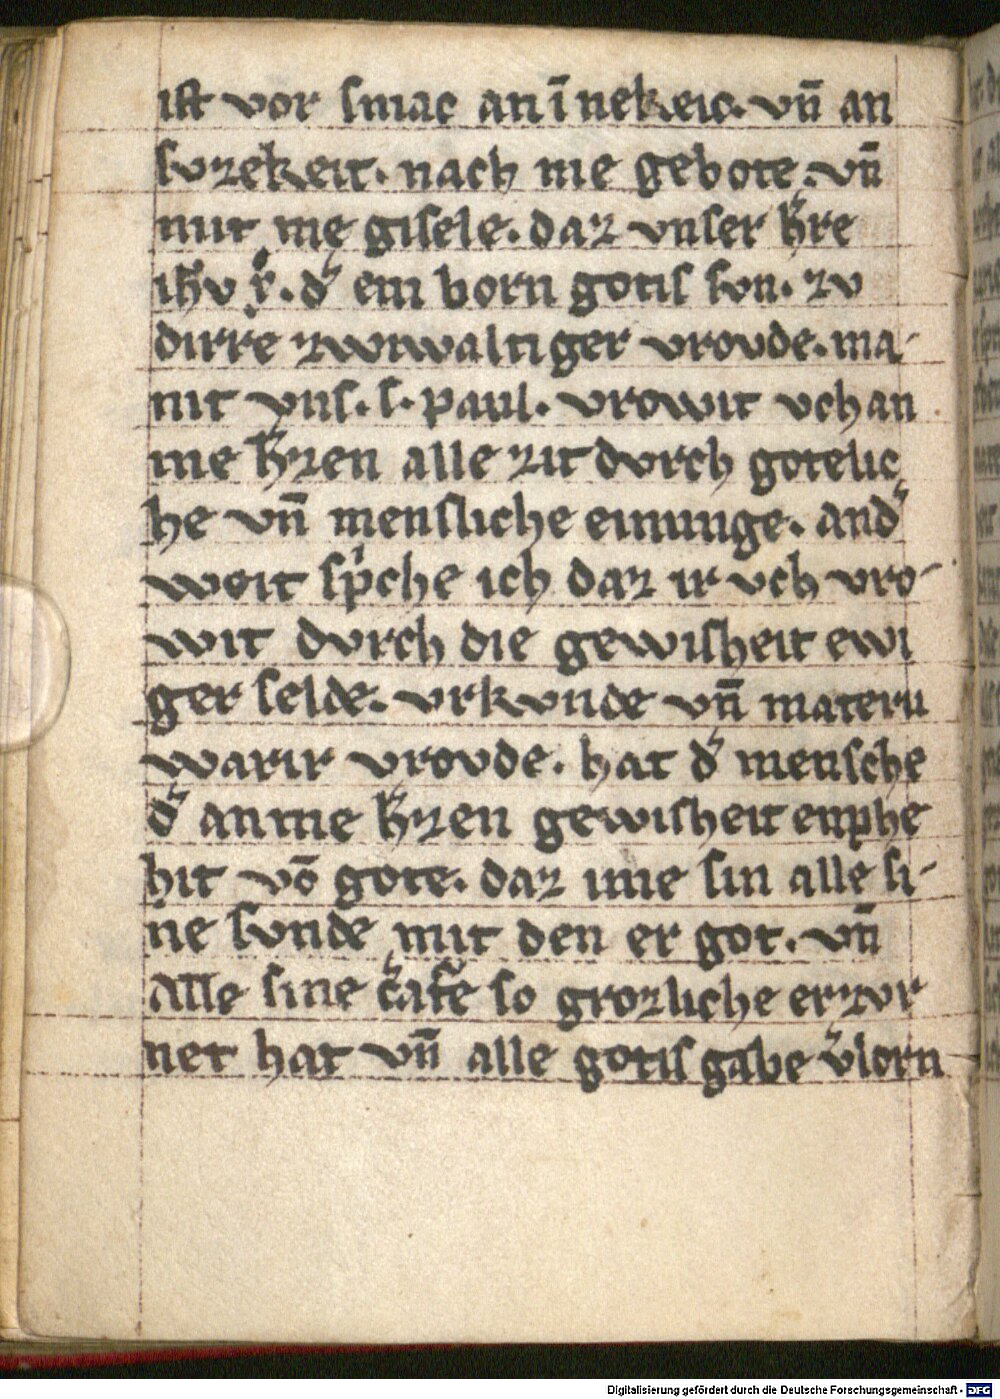 ist vor smac an īnekeit. vn̄ an
suzekeit. nach me gebote. vn̄
mit me gisele. daz vnser hr̄re
ih̄u x̄. d͛ ein born gotis sun. zv
dirre zwiwaltiger vrovde. ma-
nit vns. s. paul. vrowit vch an
me h͛ren alle zit durch gotelic
he vn̄ mensliche einunge. and͛
weit spͥche ich daz ir vch vro-
wit dvrch die gewisheit ewi
ger selde. vrkvnde vn̄ materii
warir vrovde. hat d͛ mensche
d͛ an me h͛ren gewisheit enphe
hit vō gote. daz ime sin alle si-
ne sunde mit den er got. vn̄
alle sine so grozliche erzvr
net hat vn̄ alle gotis gabe v͛lorn
Digitalisierung gefördert durch die Deutsche Forschungsgemeinschaft - DFG